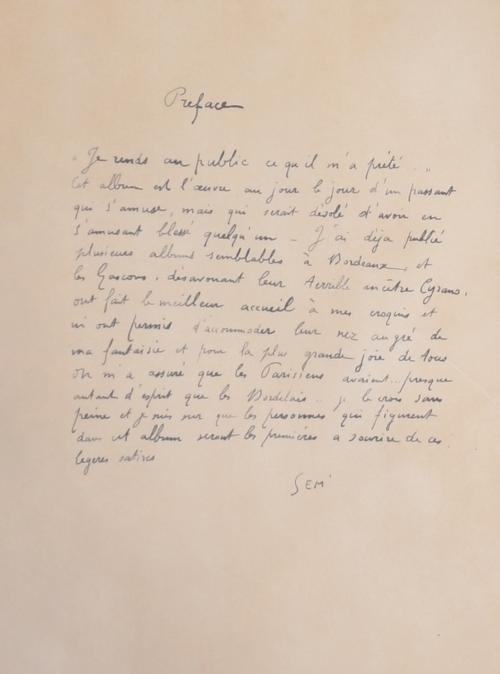 Preface
" Je rends au public ce qu'il m'a prêté . "
Cet album est l'œuvre au jour le jour d'un passant
qui s'amuse, mais qui serait désolé d'avoir en
s'amusant blessé quelqu'un – J'ai déja publié
plusieurs albums semblables à Bordeaux, et
les Gascons, désavouant leur terrible ancêtre Cyrano,
ont fait le meilleur accueil à mes croquis et
m'ont permis d'accommoder leur nez au gré de
ma fantaisie et pour la plus grande joie de tous
On m'a assuré que les Parisiens avaient .. presque
autant d'esprit que les Bordelais .. je le crois sans
peine et je suis sur que les personnes qui figurent
dans cet album seront les premières a sourire de ces
legeres satires
SEM